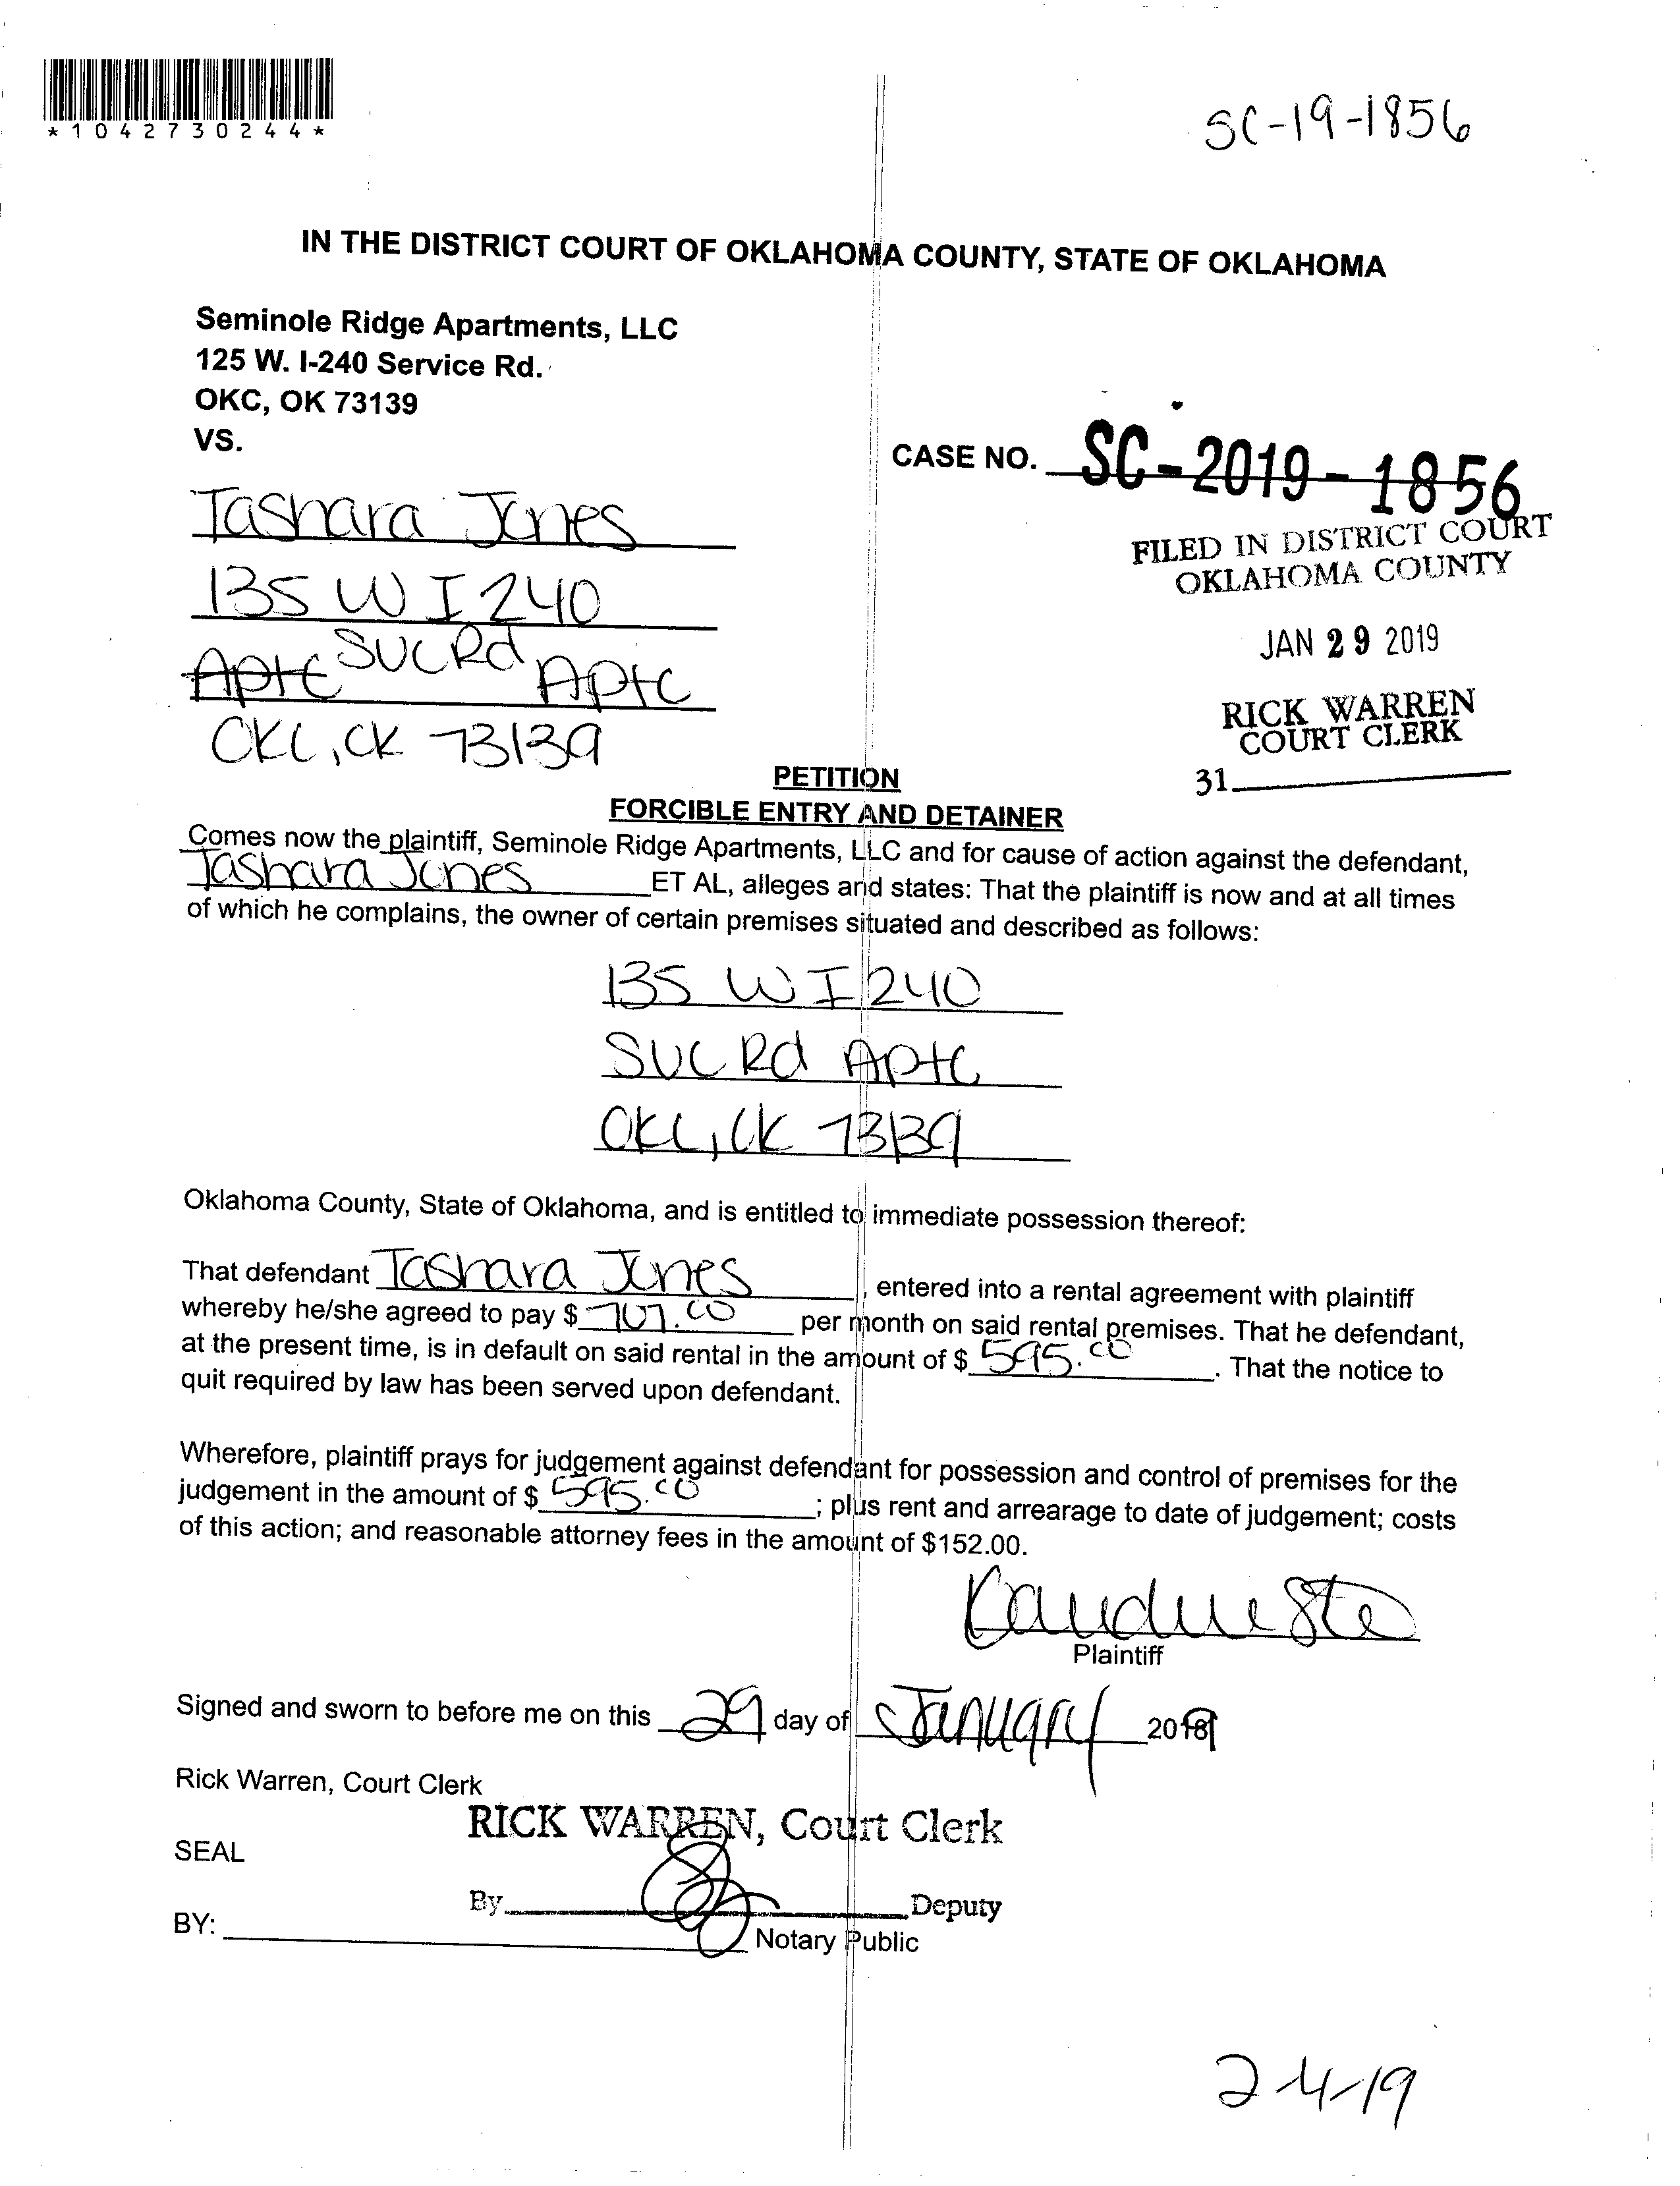 *1042730244*
SC-19-1856
IN THE DISTRICT COURT OF OKLAHOMA COUNTY, STATE OF OKLAHOMA
Seminole Ridge Apartments, LLC
125 W. I-240 Service Rd.
OKC, OK 73139
VS.
CASE NO. SC-2019-1856
Tashara Jones
FILED IN DISTRICT COURT
OKLAHOMA COUNTY
135 W I 240
JAN 29 2019
SVC Rd
AptC AptC
RICK WARREN
COURT CLERK
OKC, OK 73139
31
PETITION
FORCIBLE ENTRY AND DETAINER
Comes now the plaintiff, Seminole Ridge Apartments, LLC and for cause of action against the defendant,
Tashara Jones ET AL, alleges and states: That the plaintiff is now and at all times
of which he complains, the owner of certain premises situated and described as follows:
135 W I 240
SVC Rd AptC
OKC, OK 73139
Oklahoma County, State of Oklahoma, and is entitled to immediate possession thereof:
That defendant Tashara Jones, entered into a rental agreement with plaintiff
whereby he/she agreed to pay $ 707.00 per month on said rental premises. That he defendant,
at the present time, is in default on said rental in the amount of $ 595.00. That the notice to
quit required by law has been served upon defendant.
Wherefore, plaintiff prays for judgement against defendant for possession and control of premises for the
judgement in the amount of $ 595.00; plus rent and arrearage to date of judgement; costs
of this action; and reasonable attorney fees in the amount of $152.00.
Plaintiff
Signed and sworn to before me on this 29 day of January 2019
Rick Warren, Court Clerk
RICK WARREN, Court Clerk
SEAL
By Deputy
BY: Notary Public
2-4-19